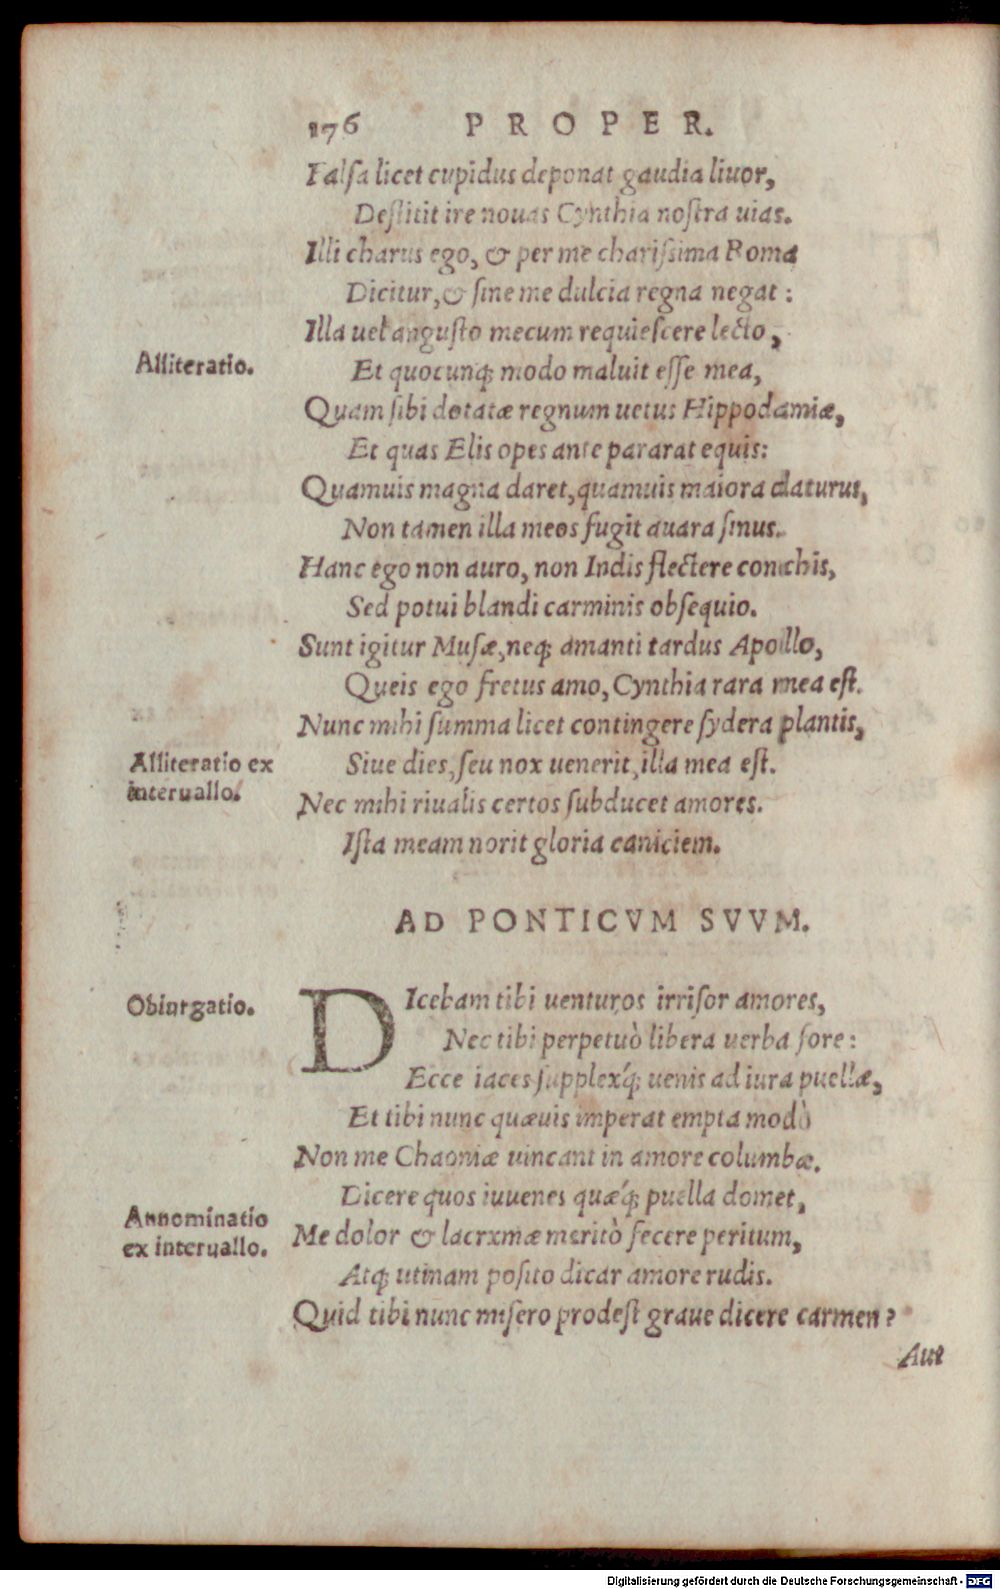 176 PROPER.
Falſa licet cupidus deponat gaudia liuor,
Deſtitit ire nouas Cynthia noſtra uias.
Illi charus ego, & per me chariſsima Roma
Dicitur, & ſine me dulcia regna negat:
Illa uel anguſto mecum requieſcere lecto,
Alliteratio.
Et quocunq; modo maluit eſſe mea,
Quam ſibi dotatæ regnum uetus Hippodamiæ,
Et quas Elis opes ante pararat equis:
Quamuis magna daret, quamuis maiora daturus,
Non tamen illa meos fugit auara ſinus.
Hanc ego non auro, non Indis flectere conchis,
Sed potui blandi carminis obſequio.
Sunt igitur Muſæ, neq; amanti tardus Apollo,
Queis ego fretus amo, Cynthia rara mea eſt.
Nunc mihi ſumma licet contingere ſydera plantis,
Alliteratio ex
interuallo.
Siue dies, ſeu nox uenerit, illa mea eſt.
Nec mihi riualis certos ſubducet amores.
Iſta meam norit gloria caniciem.
AD PONTICVM SVVM.
Obiurgatio.
DIcebam tibi uenturos irriſor amores,
Nec tibi perpetuò libera uerba fore:
Ecce iaces ſupplexq́; uenis ad iura puellæ,
Et tibi nunc quæuis imperat empta modò
Non me Chaoniæ uincant in amore columbæ.
Dicere quos iuuenes quæq́; puella domet,
Annominatio
ex interuallo.
Me dolor & lacrxmæ meritò fecere peritum,
Atq; utinam poſito dicar amore rudis.
Quid tibi nunc miſero prodeſt graue dicere carmen?
Aut
Digitalisierung gefördert durch die Deutsche Forschungsgemeinschaft - DFG